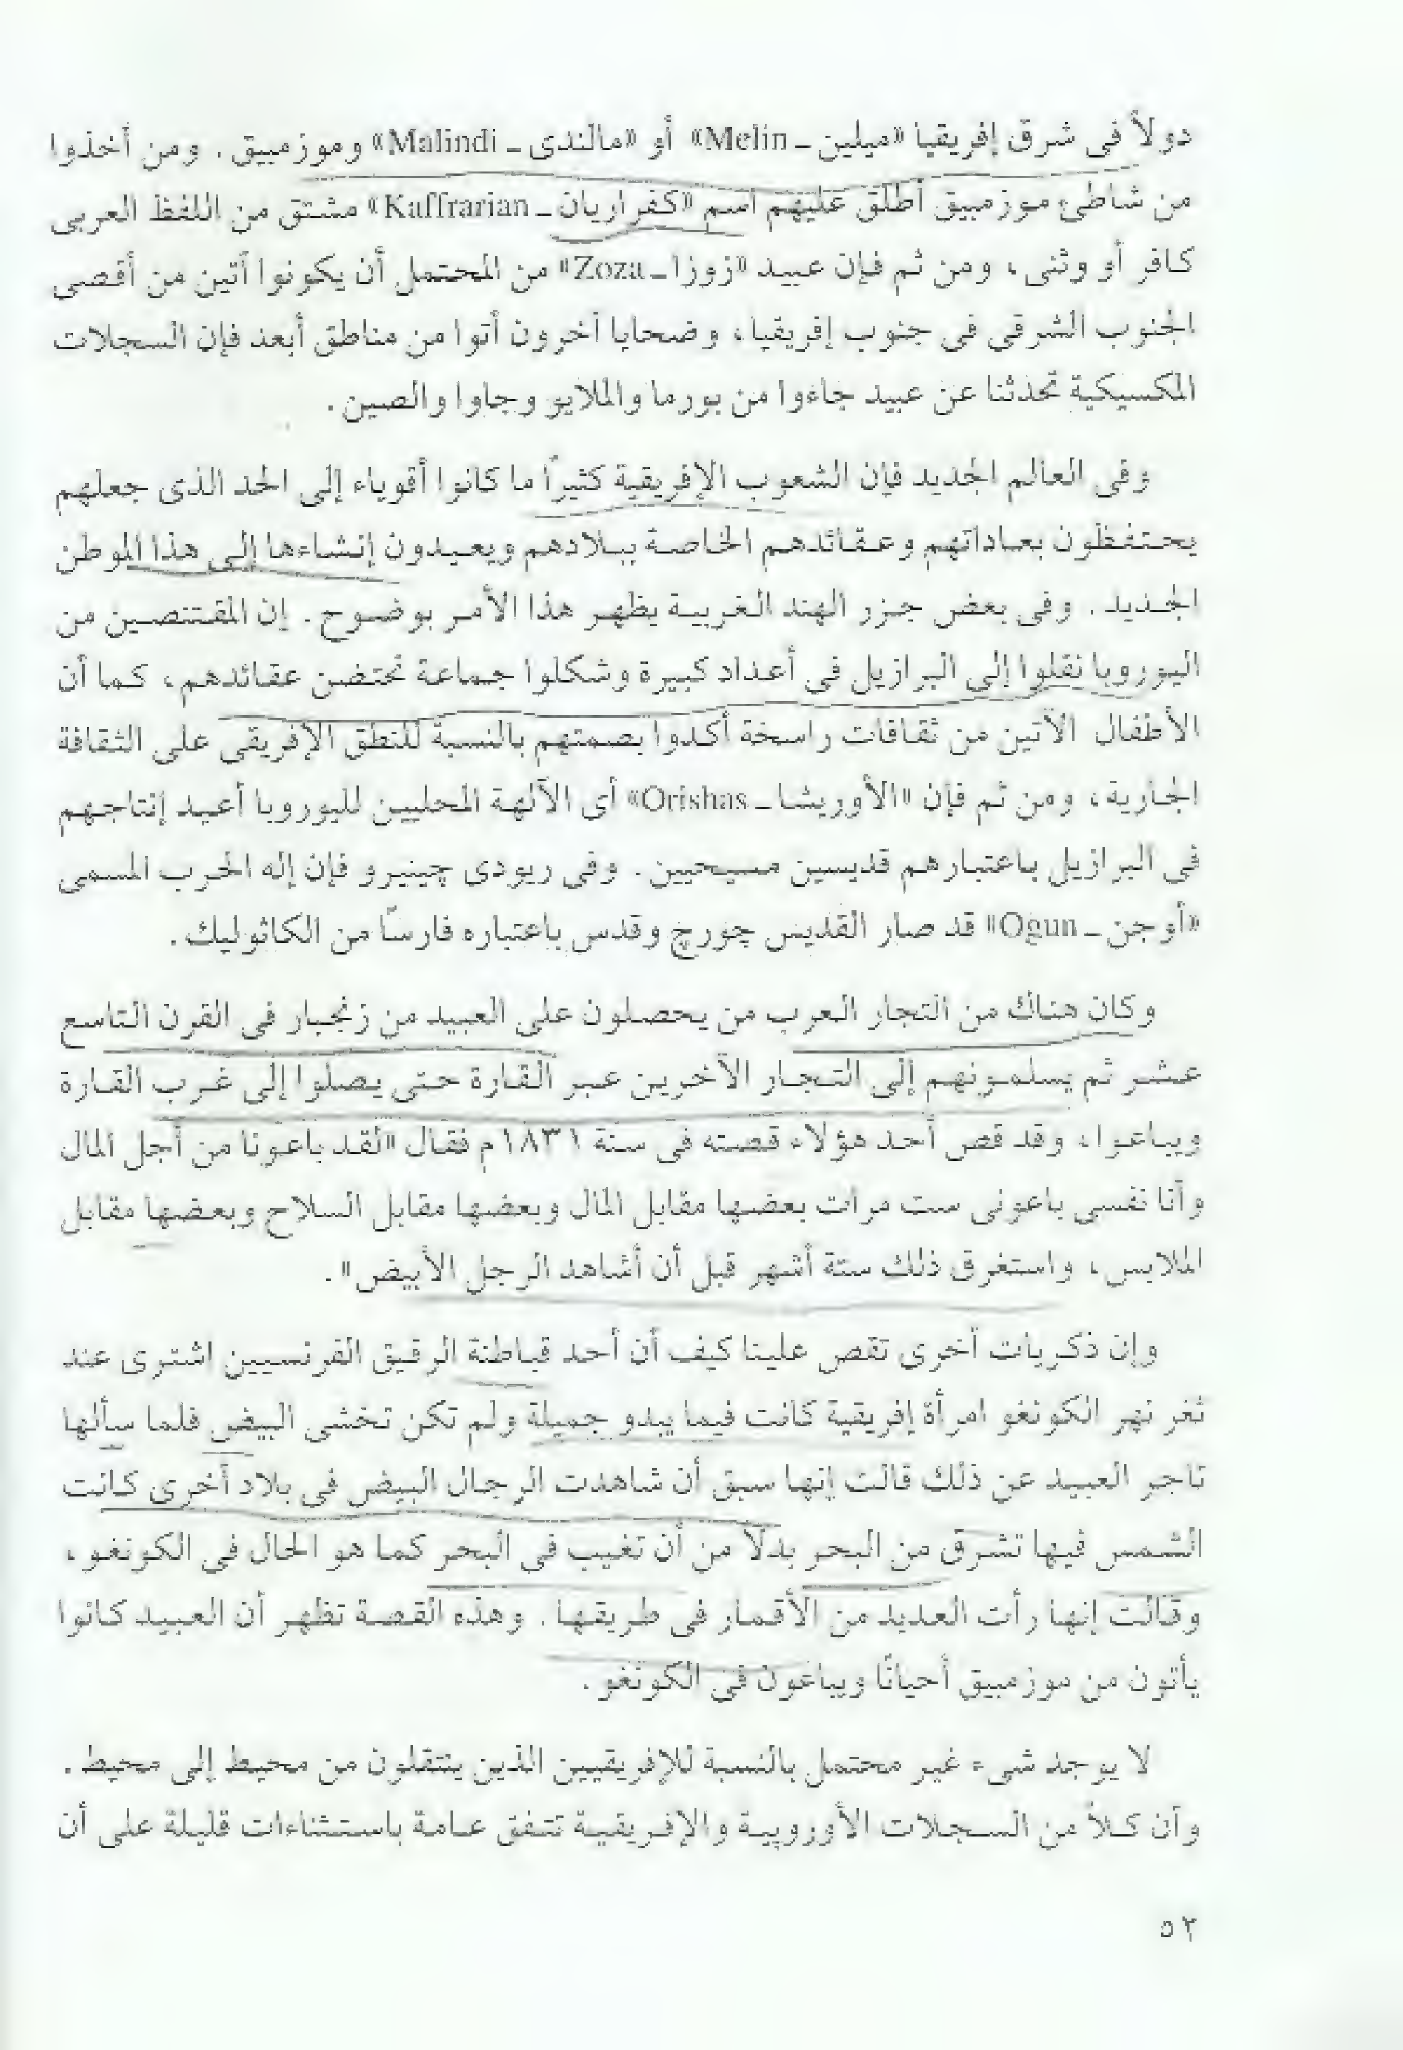 دولاً فى شرق إفريقيا «ميلين ـ Melin» أو «مالندى ـ Malindi» وموزمبيق . ومن أخذوا
من شاطئ موزمبيق أطلق عليهم اسم «كفراريان ـ Kaffrarian» مشتق من اللفظ العربى
كافر أو وثنى ، ومن ثم فإن عبيد «زوزا ـ Zoza» من المحتمل أن يكونوا آتين من أقصى
الجنوب الشرقى فى جنوب إفريقيا ، وضحايا آخرون أتوا من مناطق أبعد فإن السجلات
المكسيكية تحدثنا عن عبيد جاءوا من بورما والملايو وجاوا والصين .
وفى العالم الجديد فإن الشعوب الإفريقية كثيراً ما كانوا أقوياء إلى الحد الذى جعلهم
يحتفظون بعاداتهم وعقائدهم الخاصة ببلادهم ويعيدون إنشاءها إلى هذا الموطن
الجديد . وفى بعض جزر الهند الغربية يظهر هذا الأمر بوضوح . إن المقتنصين من
اليوروبا نقلوا إلى البرازيل فى أعداد كبيرة وشكلوا جماعة تحتضن عقائدهم ، كما أن
الأطفال الآتين من ثقافات راسخة أكدوا بصمتهم بالنسبة للنطق الإفريقى على الثقافة
الجارية ، ومن ثم فإن «الأوريشا ـ Orishas» أى الآلهة المحليين لليوروبا أعيد إنتاجهم
فى البرازيل باعتبارهم قديسين مسيحيين . وفى ريودى چينيرو فإن إله الحرب المسمى
«أوجن ـ Ogun» قد صار القديس چورچ وقدس باعتباره فارسًا من الكاثوليك .
وكان هناك من التجار العرب من يحصلون على العبيد من زنجبار فى القرن التاسع
عشر ثم يسلمونهم إلى التجار الآخرين عبر القارة حتى يصلوا إلى غرب القارة
ويباعوا ، وقد قص أحد هؤلاء قصته فى سنة ١٨٣١ م فقال «لقد باعونا من أجل المال
وأنا نفسى باعونى ست مرات بعضها مقابل المال وبعضها مقابل السلاح وبعضها مقابل
الملابس ، واستغرق ذلك ستة أشهر قبل أن أشاهد الرجل الأبيض» .
وإن ذكريات أخرى تقص علينا كيف أن أحد قباطنة الرقيق الفرنسيين اشترى عند
ثغر نهر الكونغو امرأة إفريقية كانت فيما يبدو جميلة ولم تكن تخشى البيض فلما سألها
تاجر العبيد عن ذلك قالت إنها سبق أن شاهدت الرجال البيض فى بلاد أخرى كانت
الشمس فيها تشرق من البحر بدلاً من أن تغيب فى البحر كما هو الحال فى الكونغو ،
وقالت إنها رأت العديد من الأقمار فى طريقها . وهذه القصة تظهر أن العبيد كانوا
يأتون من موزمبيق أحيانًا ويباعون فى الكونغو .
لا يوجد شىء غير محتمل بالنسبة للإفريقيين الذين ينتقلون من محيط إلى محيط .
وأن كلاً من السجلات الأوروپية والإفريقية تتفق عامة باستثناءات قليلة على أن
٥٢